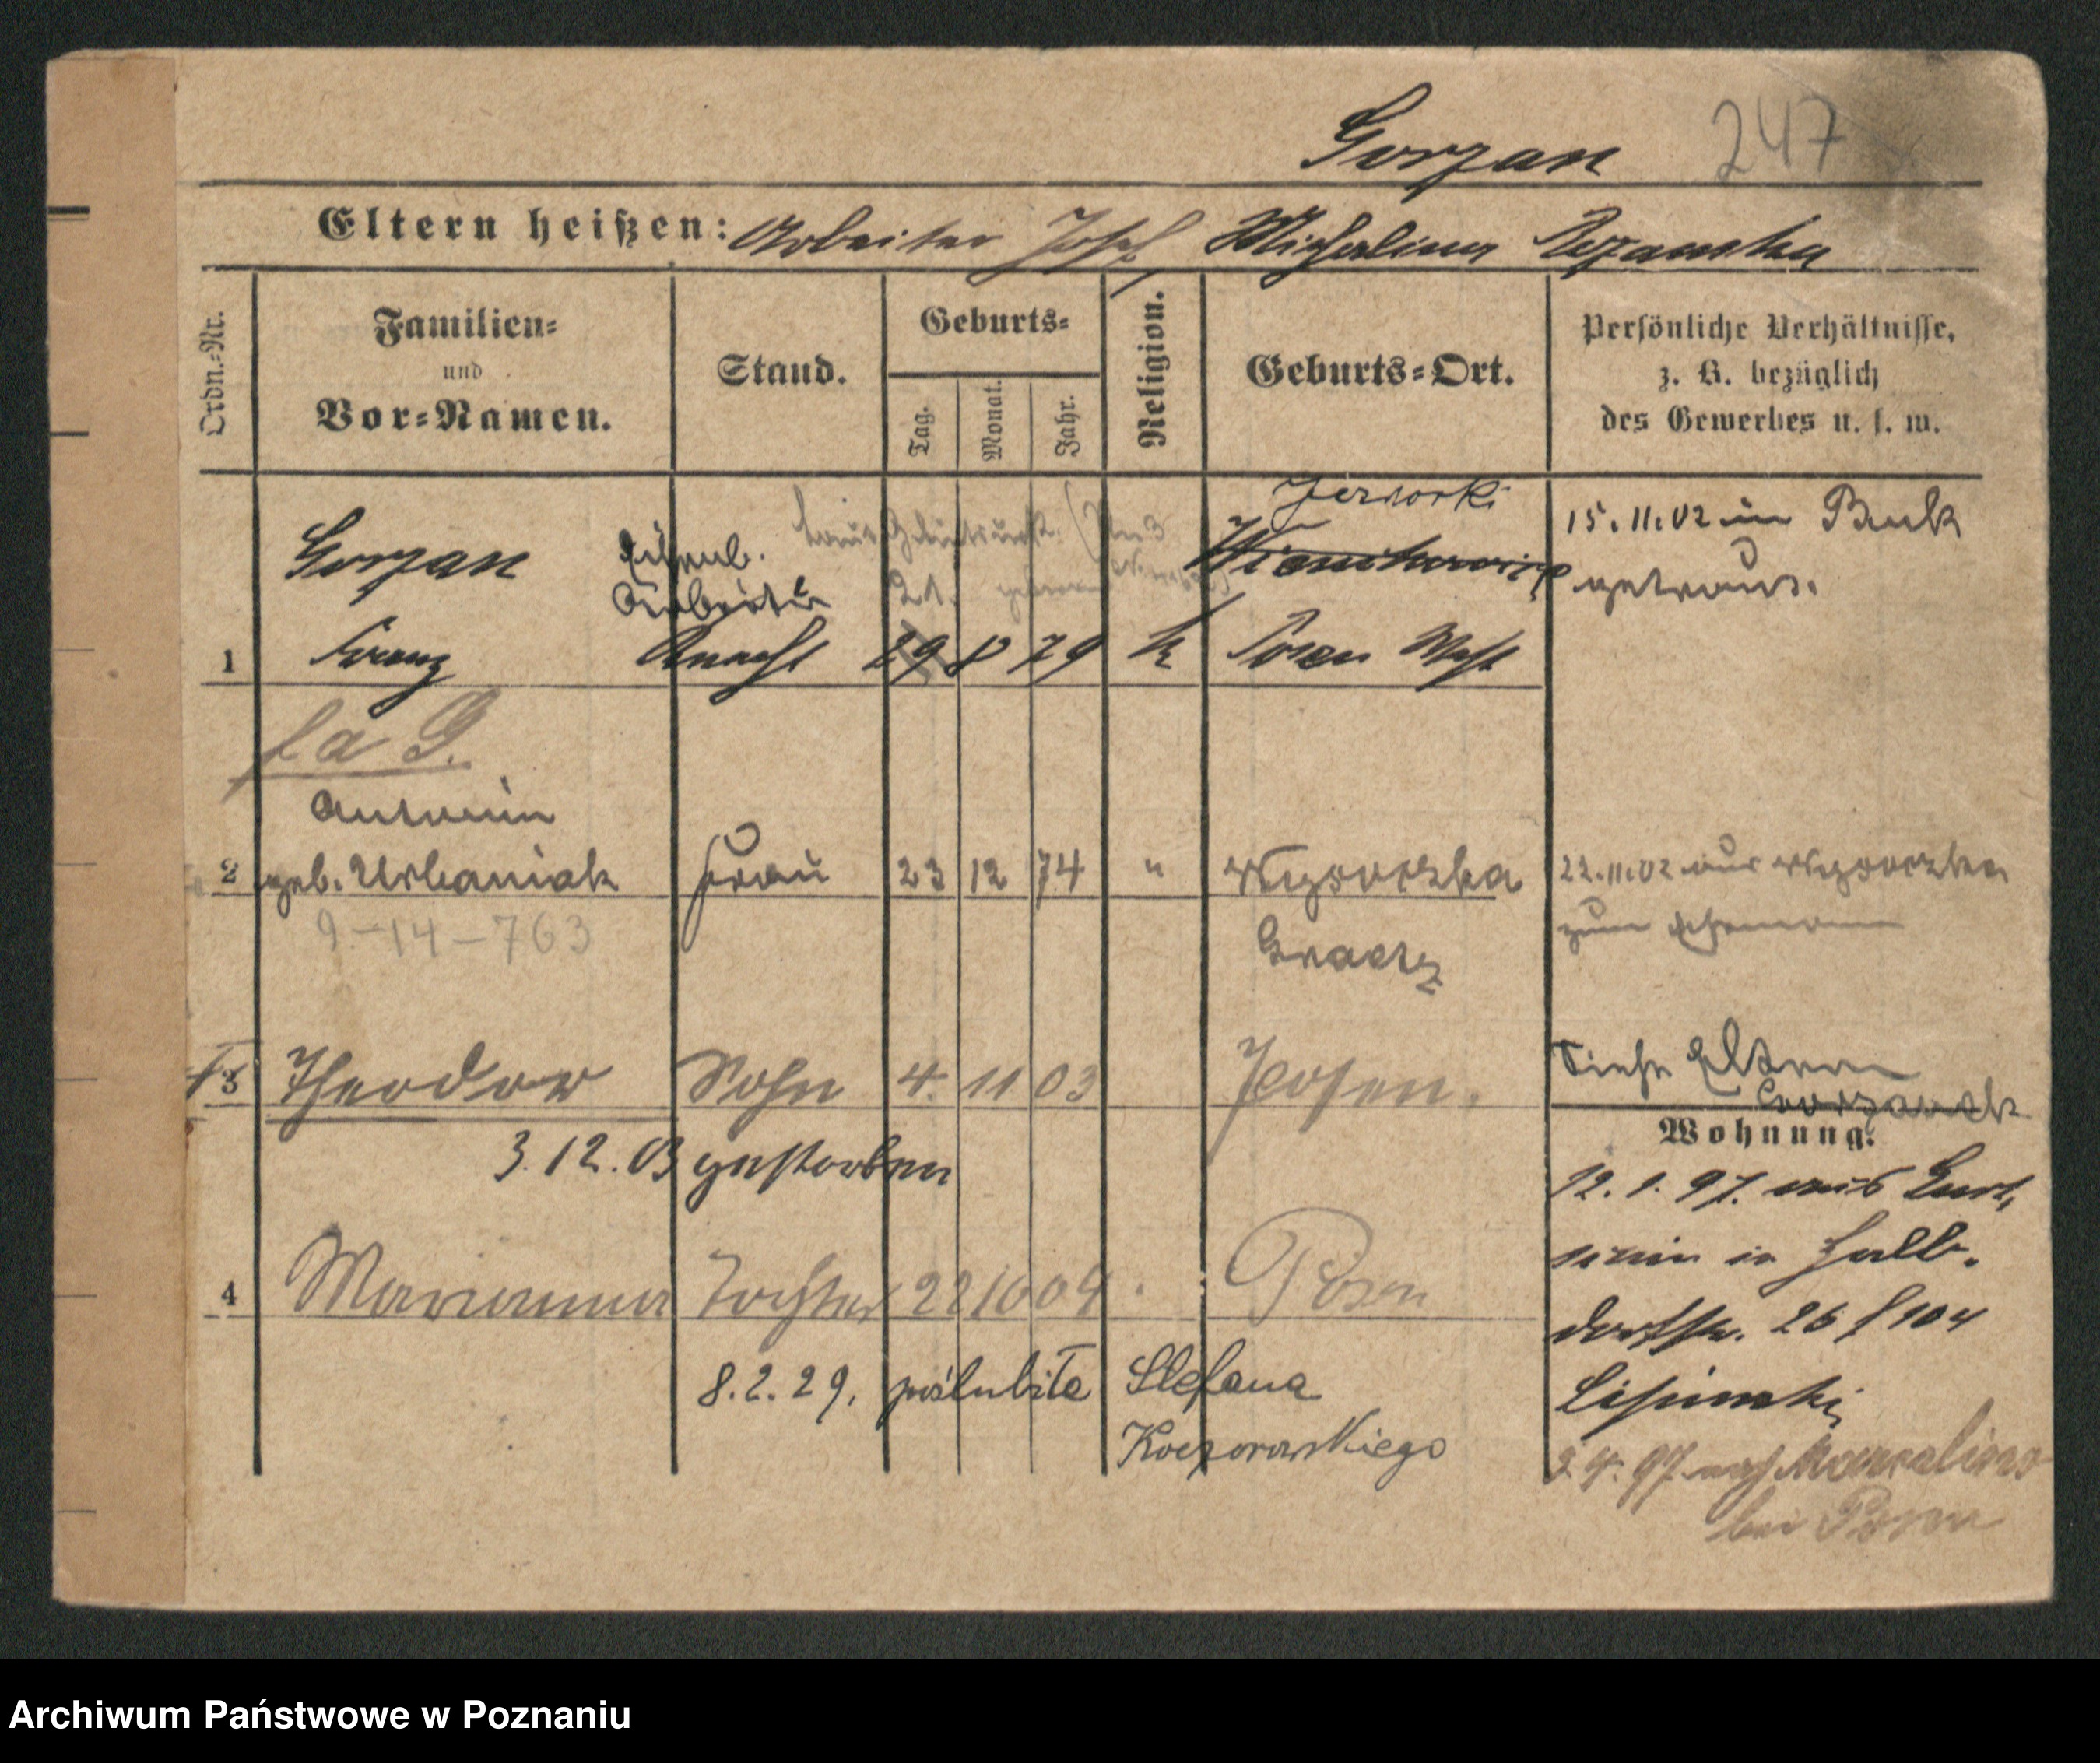 Gorzan 247
Eltern heißen: Arbeiter Josef Michalina
Ordn.-Nr.
Familien- und Vor-Namen.
Stand.
Geburts-
Tag.
Monat.
Jahr.
Religion.
Geburts-Ort.
Persönliche Verhältnisse,
z. B. bezüglich
des Gewerbes u. s. w.
Gorzan Eisenb. laut Jerzorki 15.11.02 in Buk
Arbeiter 21. getraut.
1 Franz Knecht 29 8 79 k Posen West
Antonin
2 geb. Urbaniak Frau 23 12 74 " Wygoczka 22.11.02 aus Wygoczka
9-14-763 Graetz zum Ehemann
3 Theodor Sohn 4. 11 03 Posen. Siehe Eltern
Wohnung:
3.12.03 gestorben 12.1.97. aus
in Hall-
4 Marianna Tochter 22 10 04 Posen dorfstr. 26 104
8.2.29. poślubiła Stefana
Koczorowskiego
2.4.97 nach Marcelino
bei Posen
Archiwum Państwowe w Poznaniu